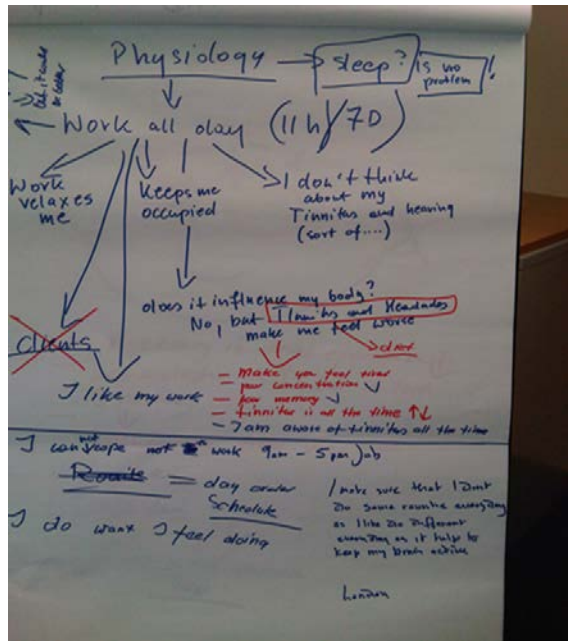 Physiology → sleep? Is no problem!
but it could be better
Work all day (11h/7D)
Work relaxes me
Keeps me occupied
I don't think about my Tinnitus and hearing (sort of....)
does it influence my body?
No, but Tinnitus and Headaches make me feel worse
diet
Clients
I like my work
– Make you feel tired
– poor concentration ✓
– poor memory ✓
– tinnitus is all the time ↑↓
– I am aware of tinnitus all the time
I can not cope not work 9am – 5pm Job
= day order
Schedule
I do want I feel doing
I make sure that I dont
do same routine everyday
as I like do different
everyday as it help to
keep my brain active
London